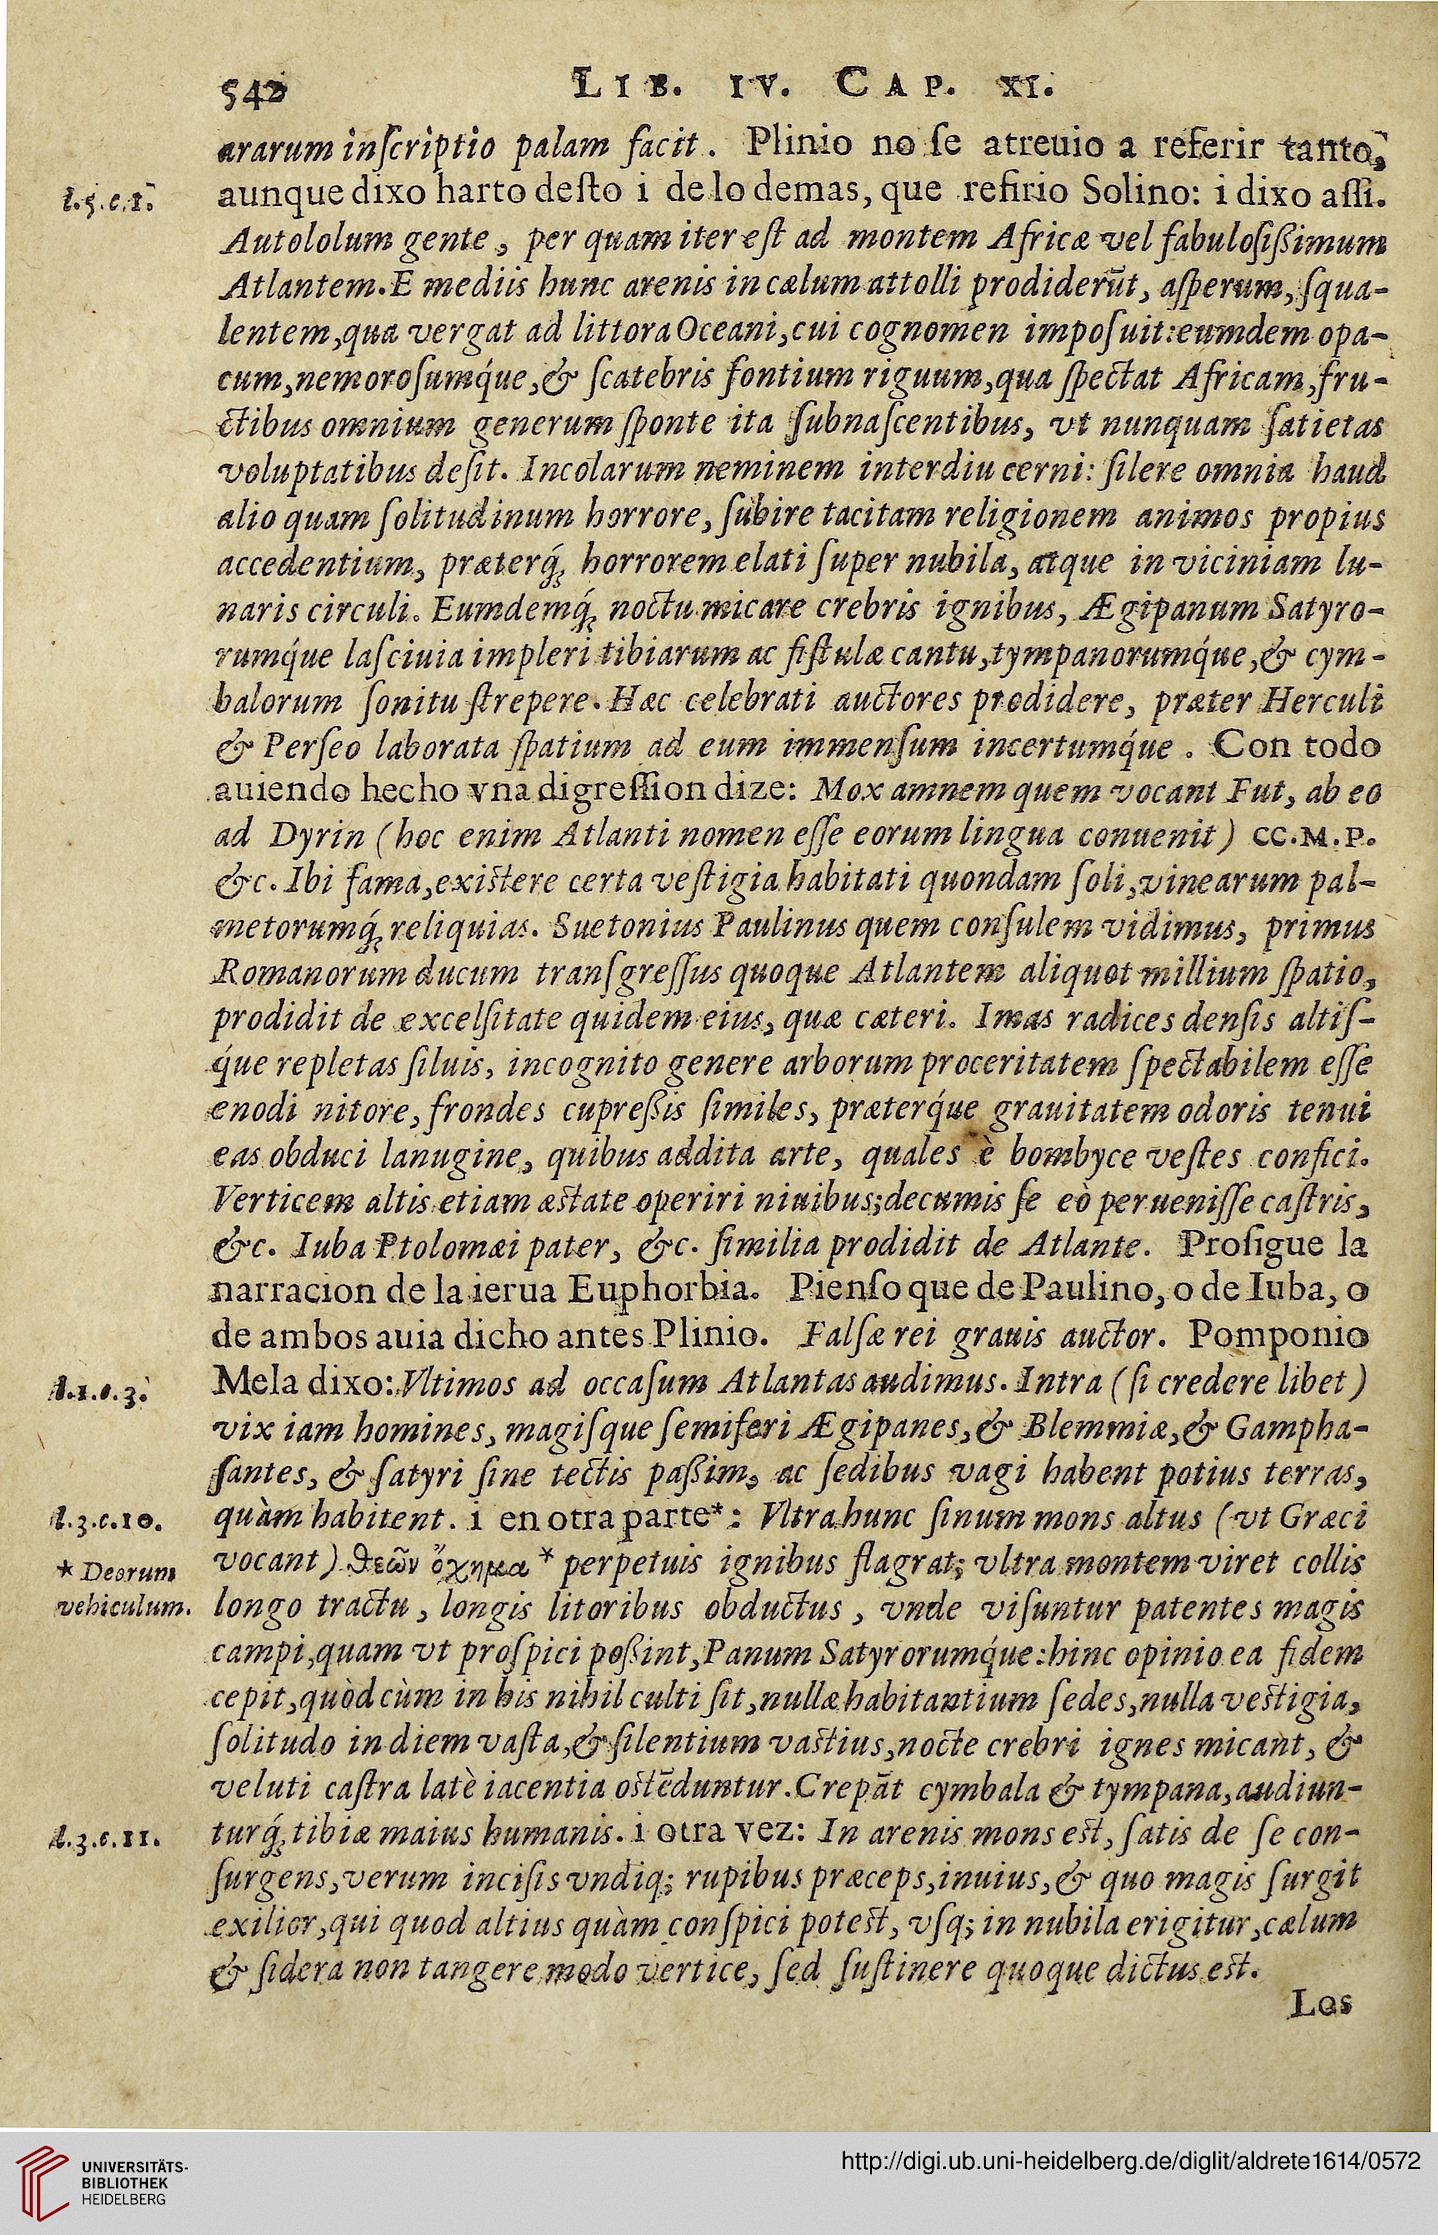 542 LIB. IV. CAP. XI.
ararum inſcriptio palam facit. Plinio no ſe atreuio a referir tanto,
l.5.c.1. aunque dixo harto deſto i de lo demas, que refirio Solino: i dixo aſſi.
Autololum gente, per quam iter eſt ad montem Africæ vel fabuloſiſſimum
Atlantem. E mediis hunc arenis in cælum attolli prodiderūt, aſperum, ſqua-
lentem, qua vergat ad littora Oceani, cui cognomen impoſuit: eumdem opa-
cum, nemoroſumq́ue, & ſcatebris fontium riguum, qua ſpectat Africam, fru-
ctibus omnium generum ſponte ita ſubnaſcentibus, vt nunquam ſatietas
voluptatibus deſit. Incolarum neminem interdiu cerni: ſilere omnia haud
alio quam ſolitudinum horrore, ſubire tacitam religionem animos propius
accedentium, præterq́; horrorem elati ſuper nubila, atque in viciniam lu-
naris circuli. Eumdemq́; noctu micare crebris ignibus, Ægipanum Satyro-
rumq́ue laſciuia impleri tibiarum ac fiſtulæ cantu, tympanorumq́ue, & cym-
balorum ſonitu ſtrepere. Hæc celebrati auctores prodidere, præter Herculi
& Perſeo laborata ſpatium ad eum immenſum incertumq́ue. Con todo
auiendo hecho vna digreſſion dize: Mox amnem quem vocant Fut, ab eo
ad Dyrin (hoc enim Atlanti nomen eſſe eorum lingua conuenit) CC.M.P.
&c. Ibi fama, exiſtere certa veſtigia habitati quondam ſoli, vinearum pal-
metorumq́; reliquias. Suetonius Paulinus quem conſulem vidimus, primus
Romanorum ducum tranſgreſſus quoque Atlantem aliquot millium ſpatio,
prodidit de excelſitate quidem eius, quæ cæteri. Imas radices denſis altiſ-
q́ue repletas ſiluis, incognito genere arborum proceritatem ſpectabilem eſſe
enodi nitore, frondes cupreſſis ſimiles, præterq́ue grauitatem odoris tenui
eas obduci lanugine, quibus addita arte, quales è bombyce veſtes confici.
Verticem altis etiam æſtate operiri niuibus; decumis ſe eò perueniſſe caſtris,
&c. Iuba Ptolomæi pater, &c. ſimilia prodidit de Atlante. Proſigue la
narracion de la ierua Euphorbia. Pienſo que de Paulino, o de Iuba, o
de ambos auia dicho antes Plinio. Falſæ rei grauis auctor. Pomponio
l.1.c.3. Mela dixo: Vltimos ad occaſum Atlantas audimus. Intra (ſi credere libet)
vix iam homines, magiſque ſemiferi Ægipanes, & Blemmiæ, & Gampha-
ſantes, & ſatyri ſine tectis paſſim, ac ſedibus vagi habent potius terras,
l.3.c.10. quàm habitent. i en otra parte*: Vltra hunc ſinum mons altus (vt Græci
* Deorum vocant) θεῶν ὄχημα * perpetuis ignibus flagrat; vltra montem viret collis
vehiculum. longo tractu, longis litoribus obductus, vnde viſuntur patentes magis
campi, quam vt proſpici poſſint, Panum Satyrorumq́ue: hinc opinio ea fidem
cepit, quòd cùm in his nihil culti ſit, nullæ habitantium ſedes, nulla veſtigia,
ſolitudo in diem vaſta, & ſilentium vaſtius, nocte crebri ignes micant, &
veluti caſtra latè iacentia oſtēduntur. Crepāt cymbala & tympana, audiun-
l.3.c.11. turq́; tibiæ maius humanis. i otra vez: In arenis mons eſt, ſatis de ſe con-
ſurgens, verum inciſis vndiq; rupibus præceps, inuius, & quo magis ſurgit
exilior, qui quod altius quàm conſpici poteſt, vſq; in nubila erigitur, cælum
& ſidera non tangere modo vertice, ſed ſuſtinere quoque dictus eſt.
Los
UNIVERSITÄTS-
BIBLIOTHEK
HEIDELBERG
http://digi.ub.uni-heidelberg.de/diglit/aldrete1614/0572